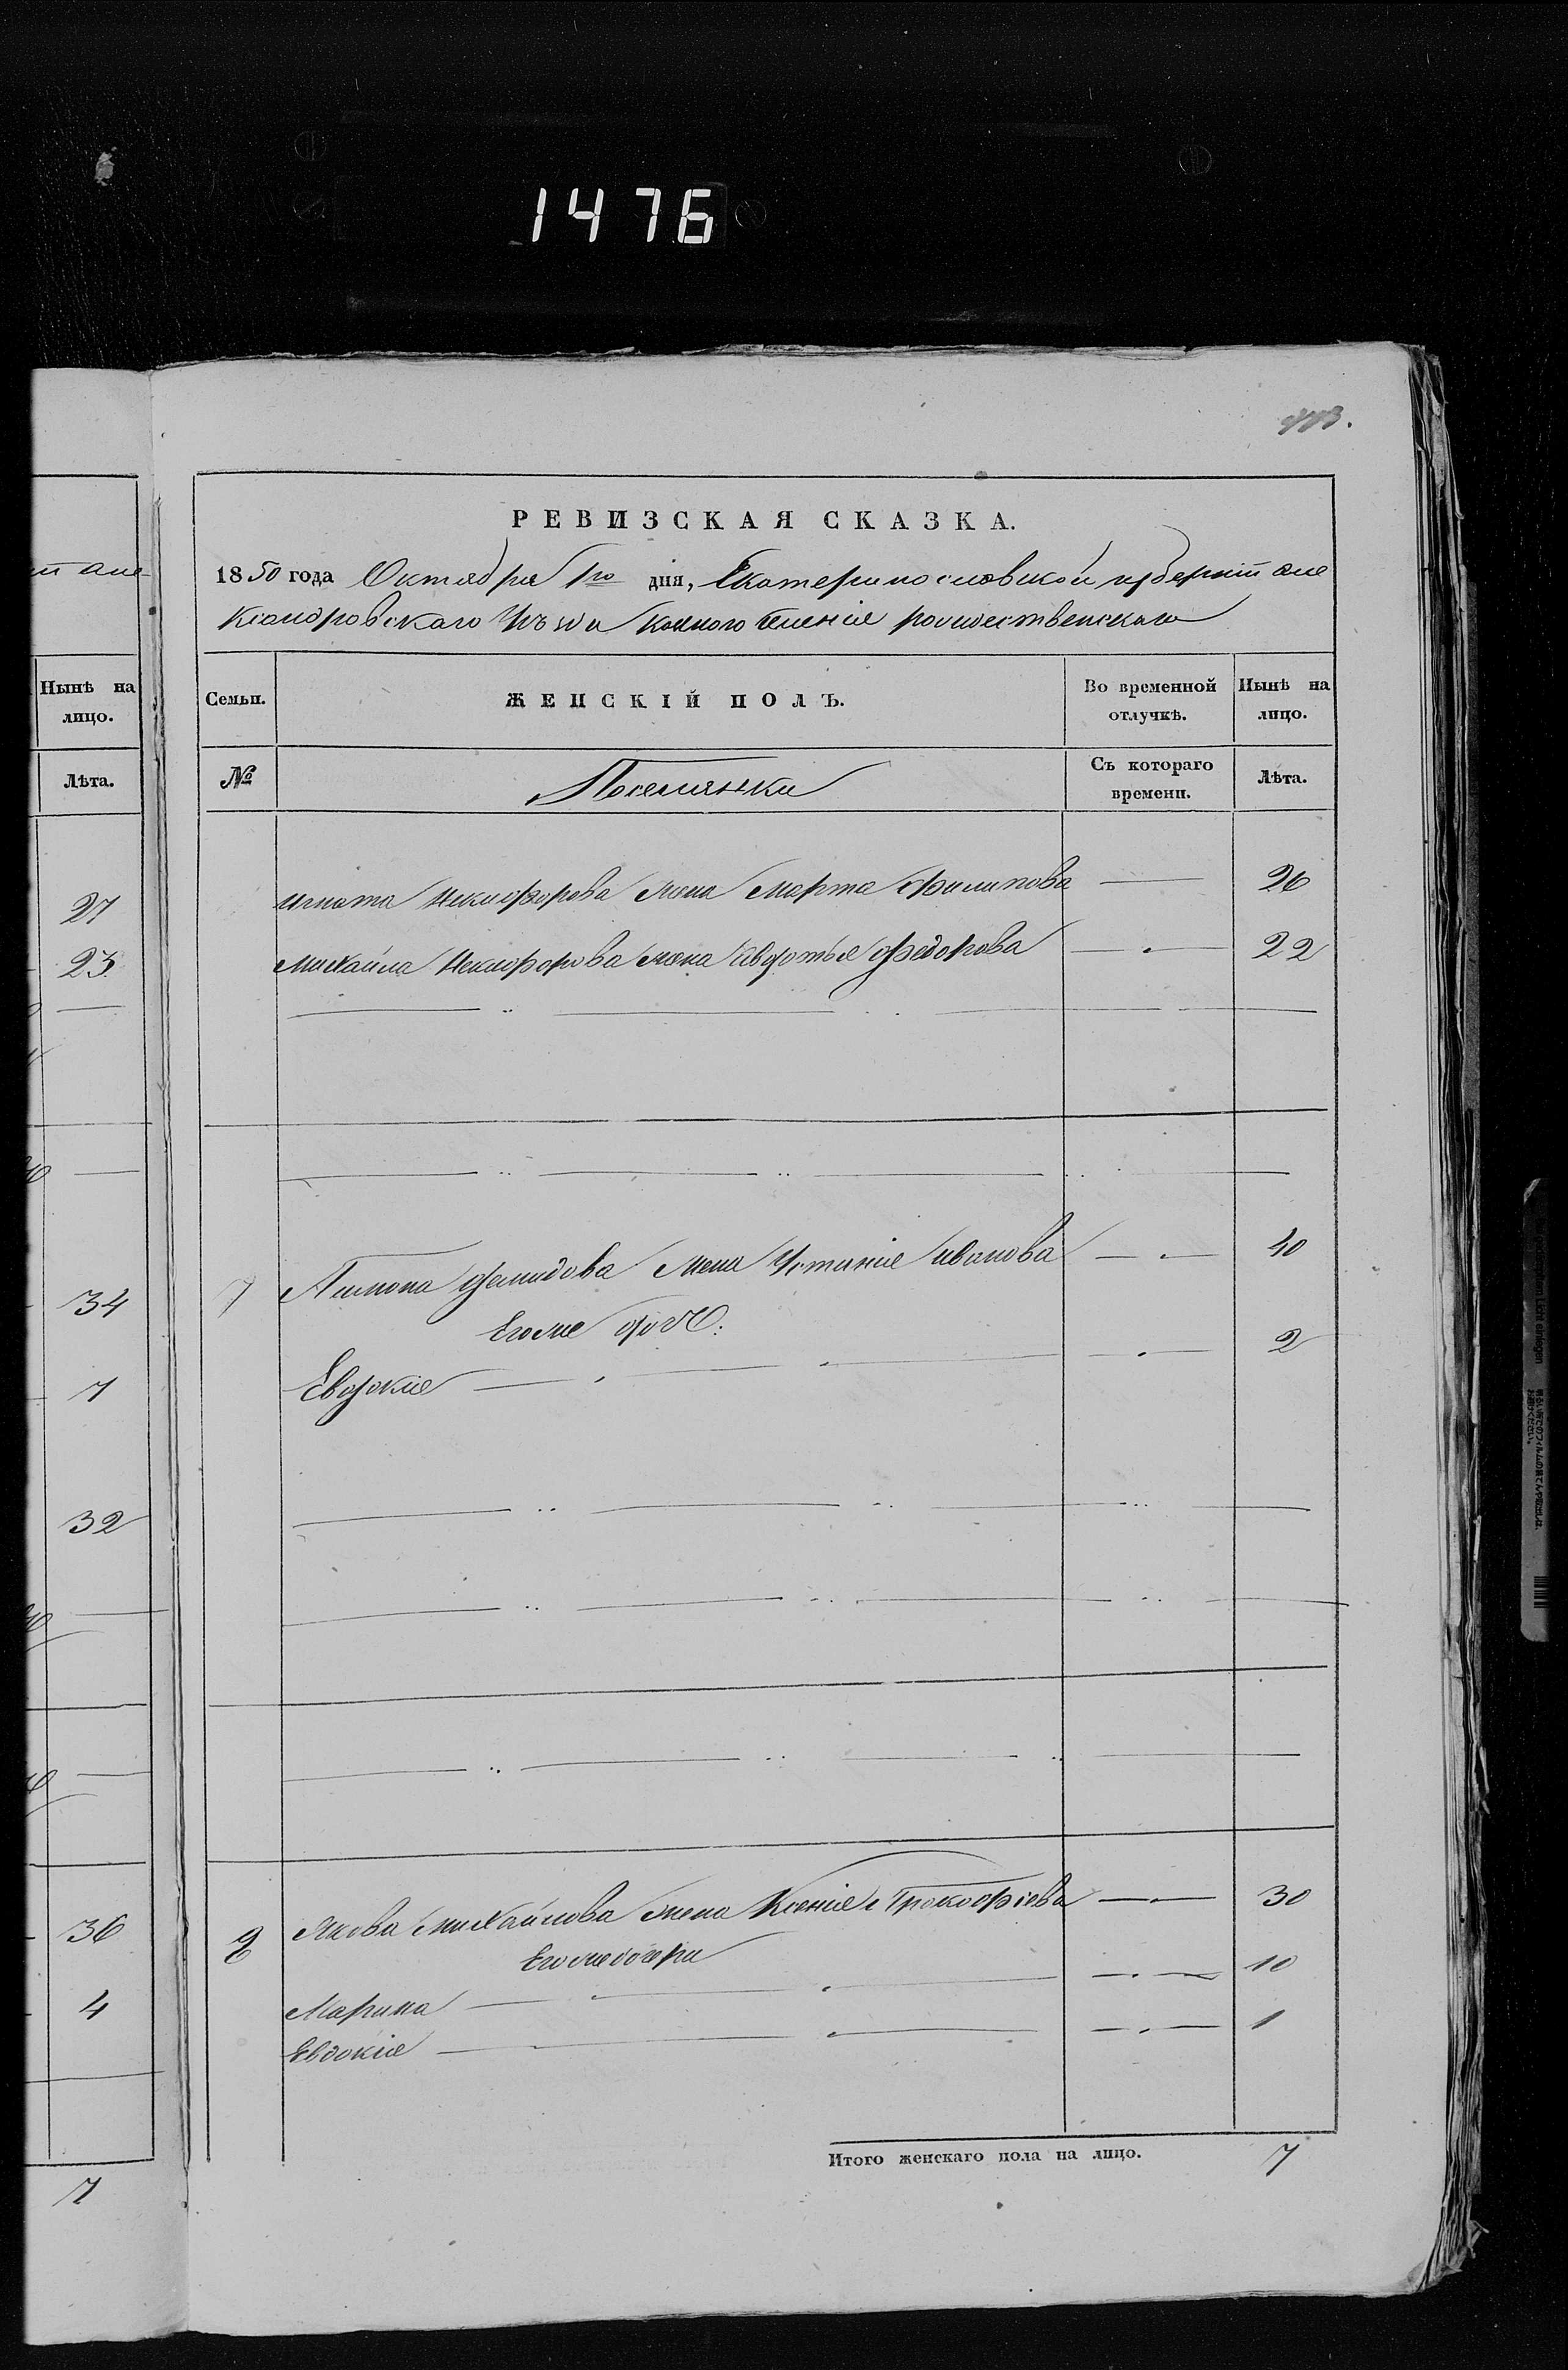 1476
РЕВИЗСКАЯ СКАЗКА.
1850 года Октября 1го дня, Екатеринославской губерніи Але
ксандровскаго Уѣзда Селенія рождественскаго
Семьи. ЖЕНСКІЙ ПОЛЪ. Во временной отлучкѣ. Нынѣ на лицо.
№ Поселянки Съ котораго времени. Лѣта.
игната Никифорова жена Марта филипова — 26
Михайла Никифорова жена Авдотья федорова — 22
7 демидова жена Устинія иванова — 40
Егоже дочь:
Евдокія — 2
8 Якова Михайлова жена Ксенія Прокофіева — 30
Егоже дочери
Марина — 10
Евдокія — 1
Итого женскаго пола на лицо. 7
Нынѣ на лицо.
Лѣта.
27
23
34
7
32
36
4
7